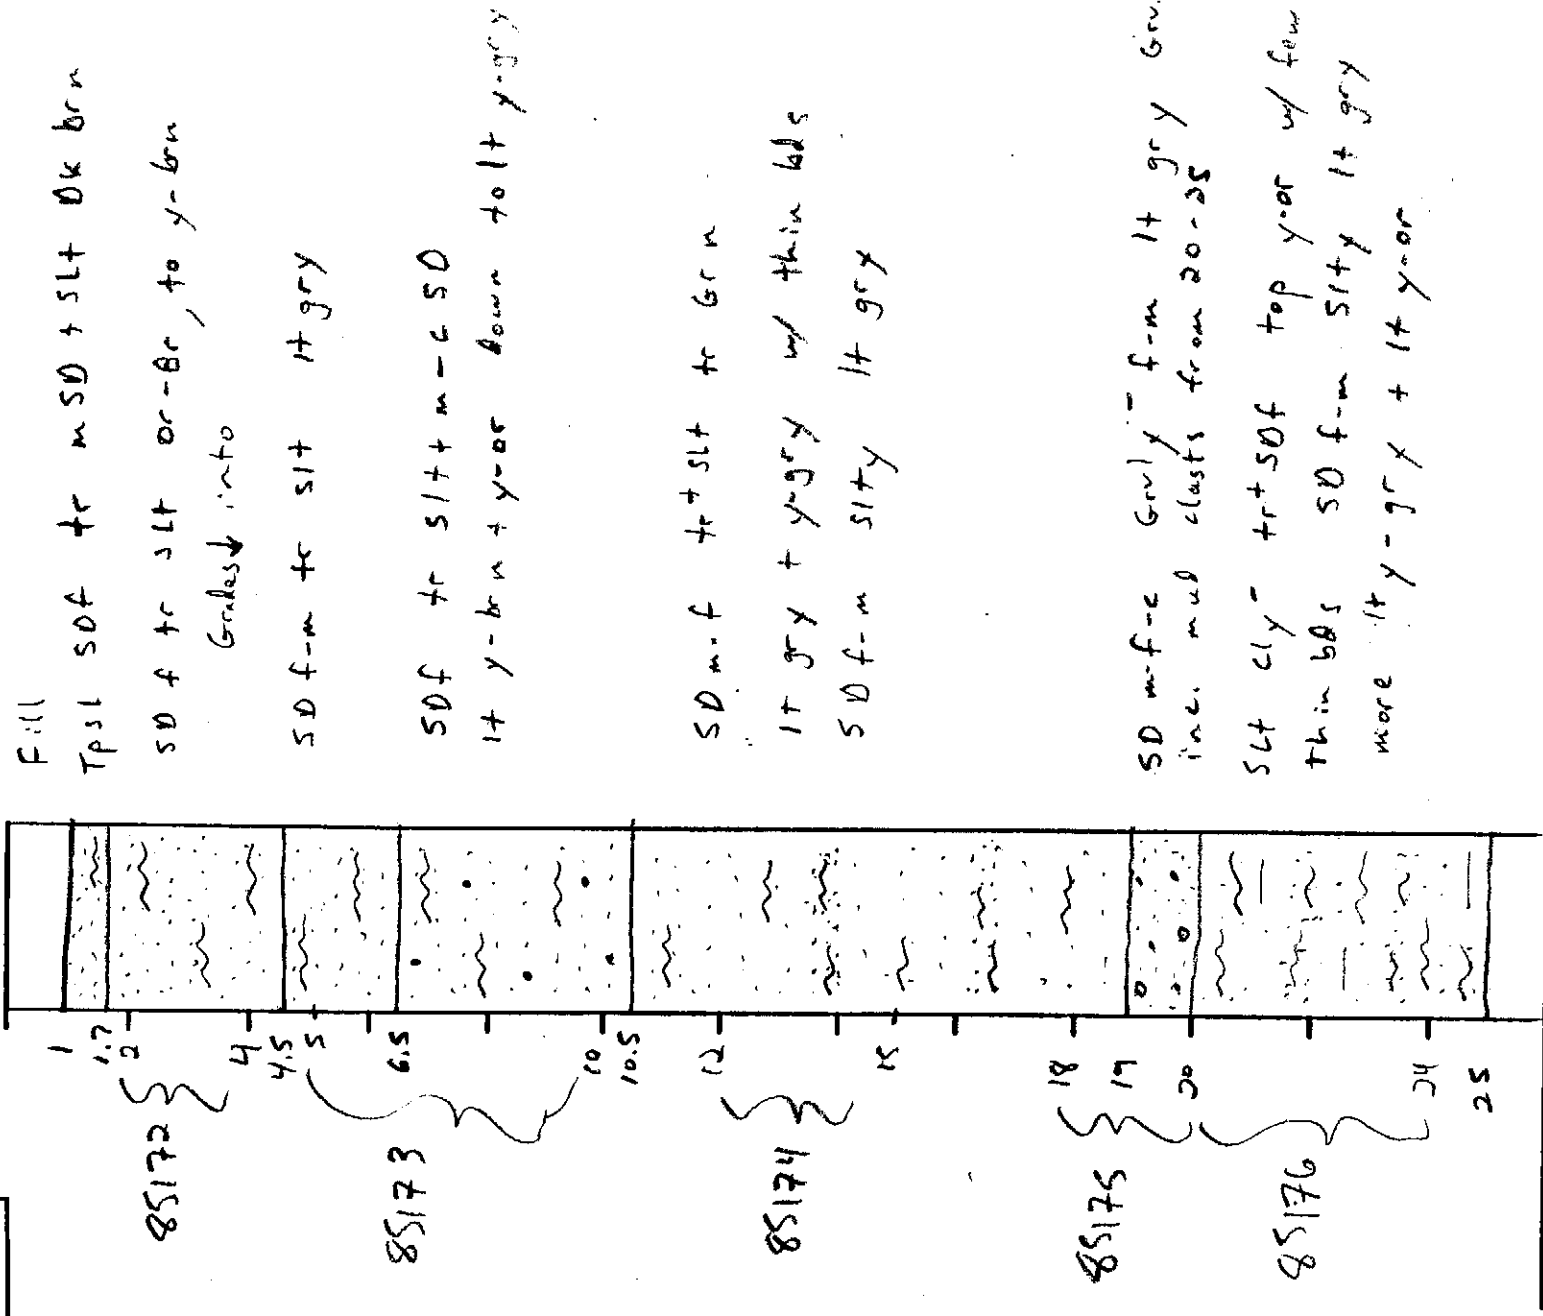 Fill
Tpsl SDf tr m SD + SLt Dk brn
SD f tr SLt or-Br, to y-brn
Grades↓ into
SD f-m tr slt lt gry
SDf tr Slt + m-c SD
lt y-brn + y-or down to lt y-gry
SD m-f tr+ SLt tr Grn
lt gry + y-gry w/ thin bds
SD f-m Slty lt gry
SD m-f-c Grvly- f-m lt gry Grv.
inc. mud clasts from 20-25
SLt cly- tr+ SDf top y-or w/ few
thin bds SD f-m Slty lt gry
more lt y-gry + lt y-or
1
1.7
2
4
4.5
5
6.5
10
10.5
12
15
18
19
20
24
25
85172
85173
85174
85175
85176